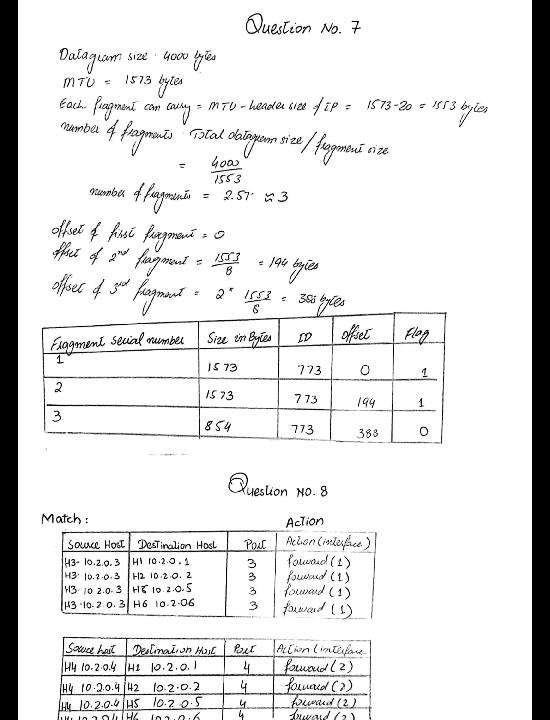 Question No. 7
Datagram size 4000 bytes
MTU = 1573 bytes
Each fragment can carry = MTU - header size of IP = 1573-20 = 1553 bytes
number of fragments Total datagram size / fragment size
= 4000
1553
number of fragments = 2.57 ≈ 3
offset of first fragment = 0
offset of 2nd fragment = 1553/8 = 194 bytes
offset of 3rd fragment = 2* 1553/8 = 388 bytes
Fragment serial number Size in Bytes ID Offset Flag
1 1573 773 0 1
2 1573 773 194 1
3 854 773 388 0
Question NO. 8
Match: Action
Source Host Destination Host Port Action (interface)
H3- 10.2.0.3 H1 10.2.0.1 3 forward (1)
H3- 10.2.0.3 H2 10.2.0.2 3 forward (1)
H3- 10.2.0.3 H5 10.2.0.5 3 forward (1)
H3-10.2.0.3 H6 10.2.06 3 forward (1)
Source host Destination Host Port Action (interface
H4 10.2.0.4 H1 10.2.0.1 4 forward (2)
H4 10.2.0.4 H2 10.2.0.2 4 forward (2)
H4 10.2.0.4 H5 10.2.0.5 4 forward (2)
H4 10.2.0.4 H6 10.2.0.6 4 forward (2)